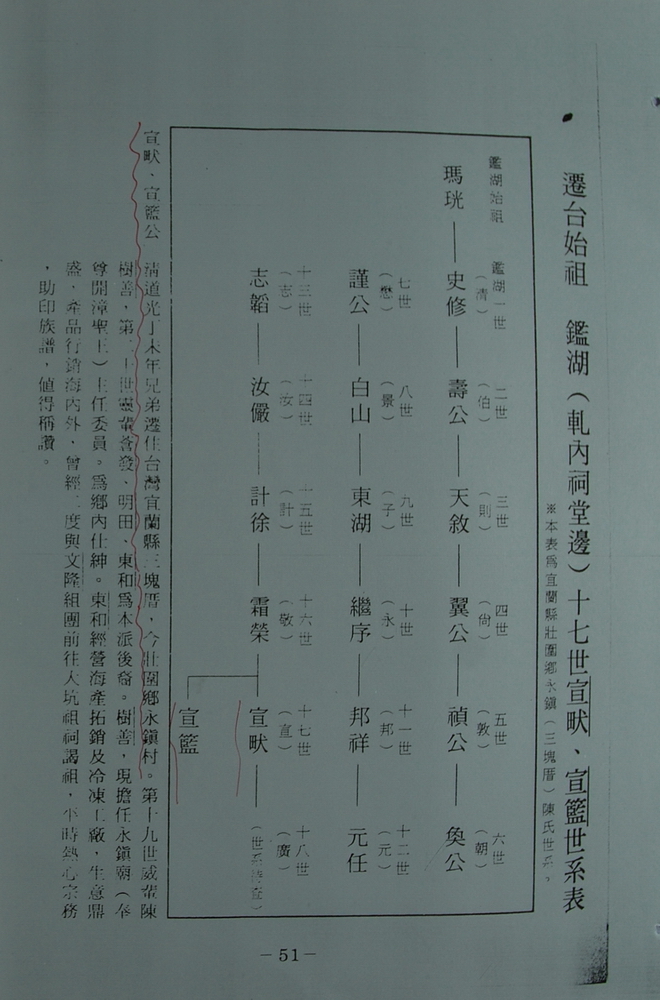 遷台始祖　鑑湖（軋內祠堂邊）十七世宣畎、宣籃世系表
※本表為宜蘭縣壯圍鄉永鎮（三塊厝）陳氏世系。
鑑湖始祖　鑑湖一世（清）　二世（伯）　三世（則）　四世（尙）　五世（敦）　六世（朝）
瑪珖——史修——壽公——天敘——翼公——禎公——奐公
七世（懋）　八世（景）　九世（子）　十世（永）　十一世（邦）　十二世（元）
謹公——白山——東湖——繼序——邦祥——元任
十三世（志）　十四世（汝）　十五世（計）　十六世（敬）　十七世（宣）　十八世（廣）
志韜——汝儼——計徐——霜榮——宣畎——（世系待查）
宣籃
宣畎、宣籃公　清道光丁未年兄弟遷住台灣宜蘭縣三塊厝，今壯圍鄉永鎮村。第十九世威輩陳
樹善，第二十世靈輩蒼發、明田、東和為本派後裔。樹善，現擔任永鎮廟（奉
尊開漳聖王）主任委員。為鄉內仕紳。東和經營海產拓銷及冷凍工廠，生意鼎
盛，產品行銷海內外，曾經二度與文隆組團前往大坑祖祠謁祖，平時熱心宗務
，助印族譜，值得稱讚。
－51－